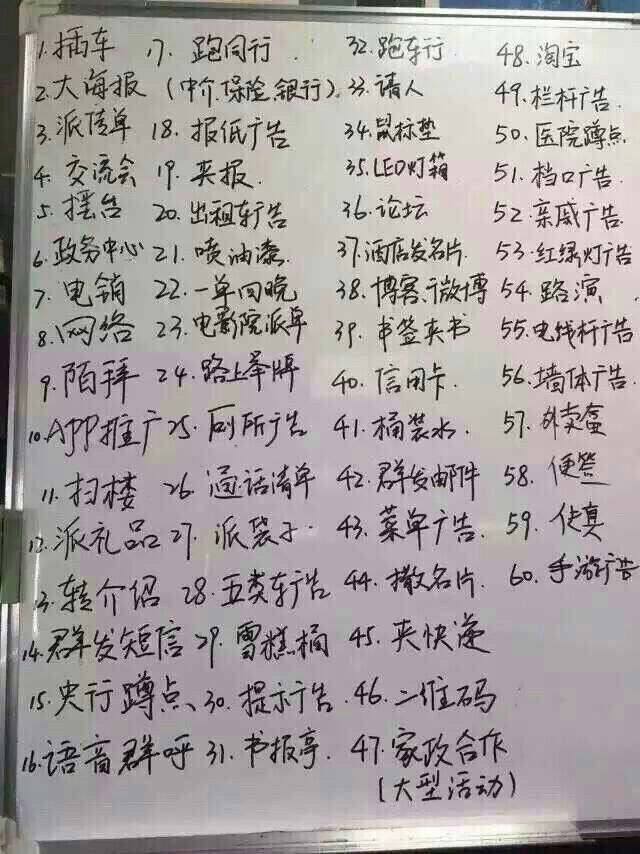 1. 插车
2. 大海报
3. 派传单
4. 交流会
5. 摆台
6. 政务中心
7. 电销
8. 网络
9. 陌拜
10. APP推广
11. 扫楼
12. 派礼品
13. 转介绍
14. 群发短信
15. 央行蹲点、
16. 语音群呼
17. 跑同行
(中介.保险.银行).
18. 报纸广告
19. 夹报.
20. 出租车广告
21. 喷油漆.
22. 一单回晚
23. 电影院派单
24. 路上举牌
25. 厕所广告
26. 通话清单
27. 派袋子.
28. 五类车广告
29. 雪糕桶
30. 提示广告
31. 书报亭.
32. 跑车行
33. 请人
34. 鼠标垫
35. LED灯箱
36. 论坛
37. 酒店发名片.
38. 博客、微博
39. 书签夹书
40. 信用卡.
41. 桶装水.
42. 群发邮件
43. 菜单广告.
44. 撒名片.
45. 夹快递
46. 二维码
47. 家政合作
(大型活动)
48. 淘宝
49. 栏杆广告.
50. 医院蹲点
51. 档口广告.
52. 亲戚广告.
53. 红绿灯广告
54. 路演.
55. 电线杆广告
56. 墙体广告.
57. 外卖盒
58. 便签
59. 传真
60. 手游广告